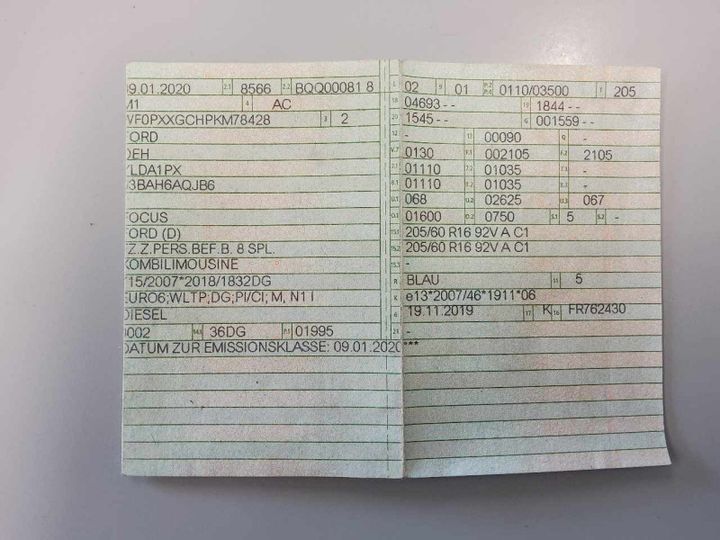 09.01.2020 2.1 8566 2.2 BQQ00081 8
M1 4 AC
WF0PXXGCHPKM78428 3 2
FORD
DEH
YLDA1PX
3BAH6AQJB6
FOCUS
FORD (D)
FZ.Z.PERS.BEF.B. 8 SPL.
KOMBILIMOUSINE
715/2007*2018/1832DG
EURO6;WLTP;DG;PI/CI; M, N1 I
DIESEL
0002 14.1 36DG P.1 01995
DATUM ZUR EMISSIONSKLASSE: 09.01.2020***
L 02 9 01 P.2 P.4 0110/03500 T 205
18 04693-- 19 1844--
20 1545-- G 001559--
12 - 13 00090 Q -
V.7 0130 F.1 002105 F.2 2105
7.1 01110 7.2 01035 7.3 -
8.1 01110 8.2 01035 8.3 -
U.1 068 U.2 02625 U.3 067
O.1 01600 O.2 0750 S.1 5 S.2 -
15.1 205/60 R16 92V A C1
15.2 205/60 R16 92V A C1
15.3 -
R BLAU 11 5
K e13*2007/46*1911*06
6 19.11.2019 17 K 16 FR762430
21 -